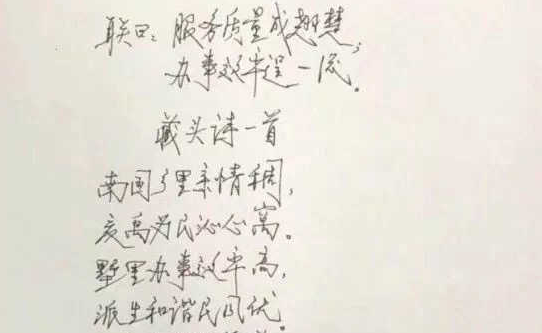 联曰：服务质量成翘楚，
办事效率逞一流。
藏头诗一首
南国万里亲情稠，
为民沁心寓。
墅里办事效率高，
派生和谐民风优